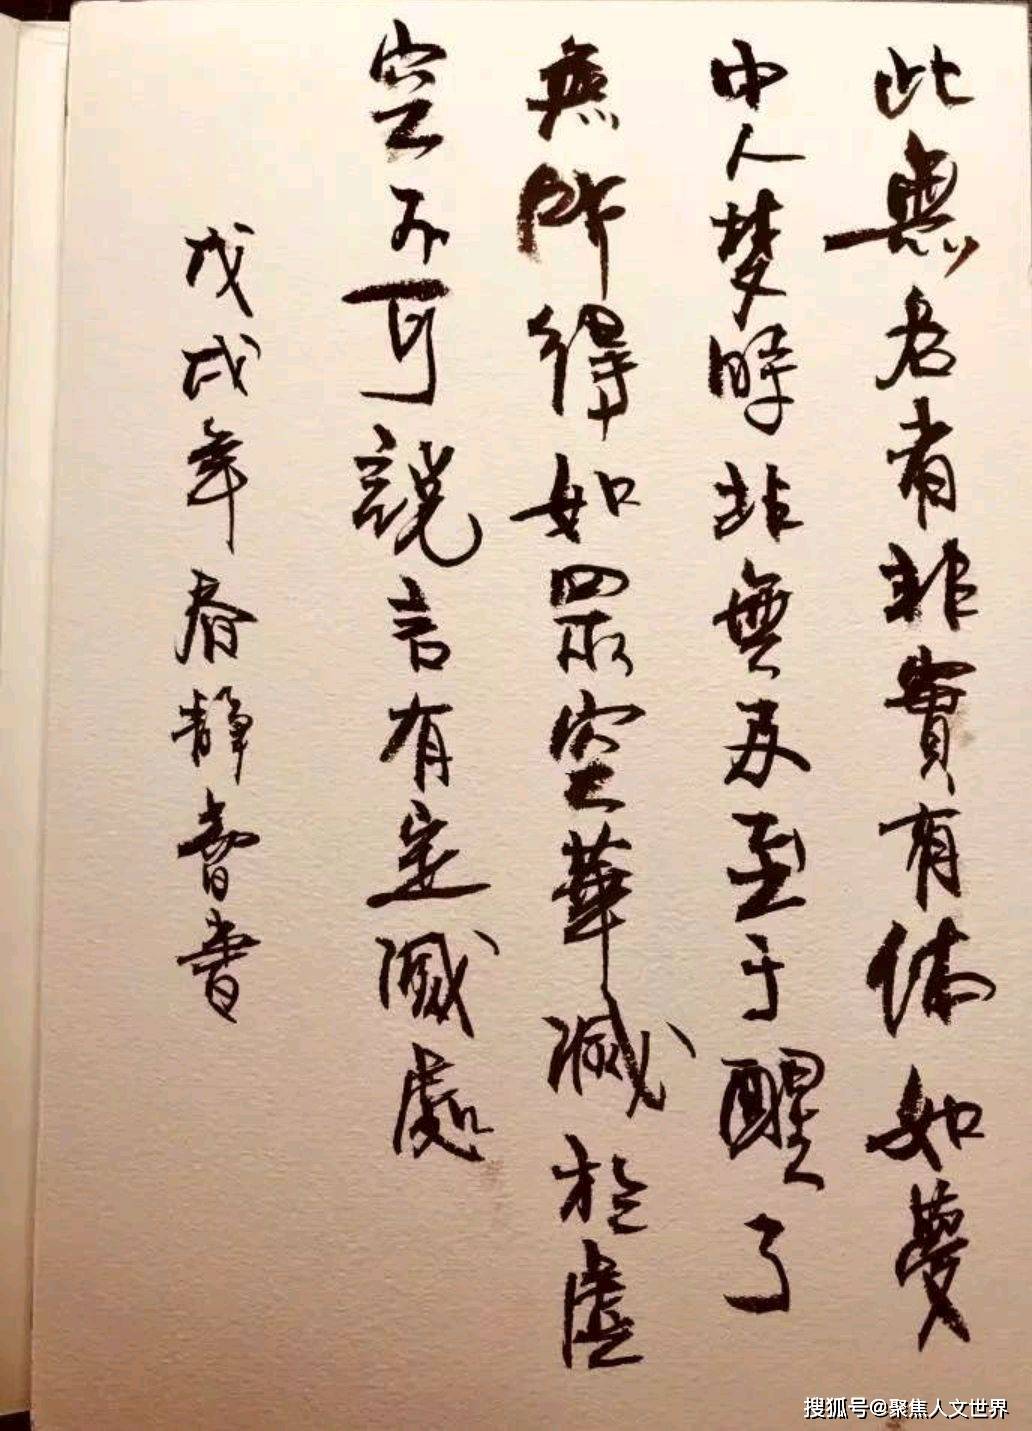 此無名者非實有体如夢
中人梦時非無及至于醒了
無所得如眾空華滅於虛
空不可説言有定滅處
戊戌年春靜書
搜狐号@聚焦人文世界